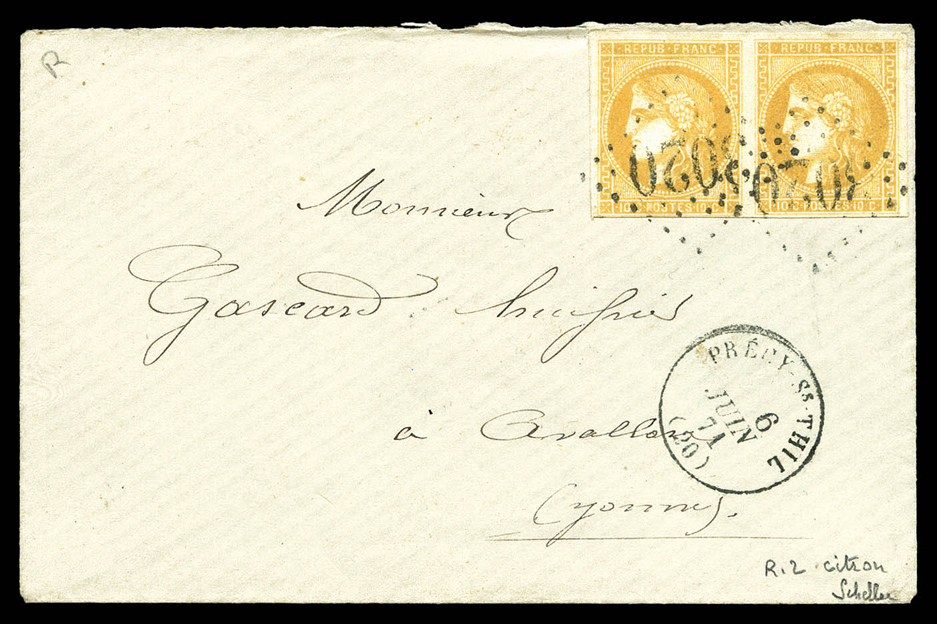 R
REPUB · FRANC
REPUB · FRANC
3020
3020
10 C · POSTES · 10 C
10 C · POSTES · 10 C
Monsieur
Gascard huissier
à Avallon
(yonne).
PRÉCY-Ss-THIL
6
JUIN
71
(20)
R.2 citron
Scheller